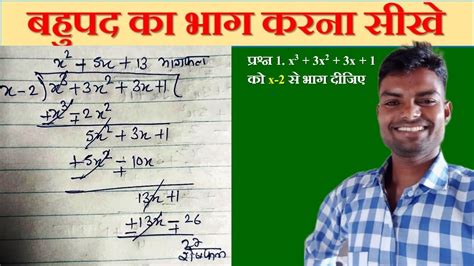 बहुपद का भाग करना सीखे
x² + 5x + 13 भागफल
x-2) x³ + 3x² + 3x + 1 (
±x³ ∓ 2x²
5x² + 3x + 1
±5x² ∓ 10x
13x + 1
±13x ∓ 26
27
शेषफल
प्रश्न 1. x³ + 3x² + 3x + 1
को x-2 से भाग दीजिए